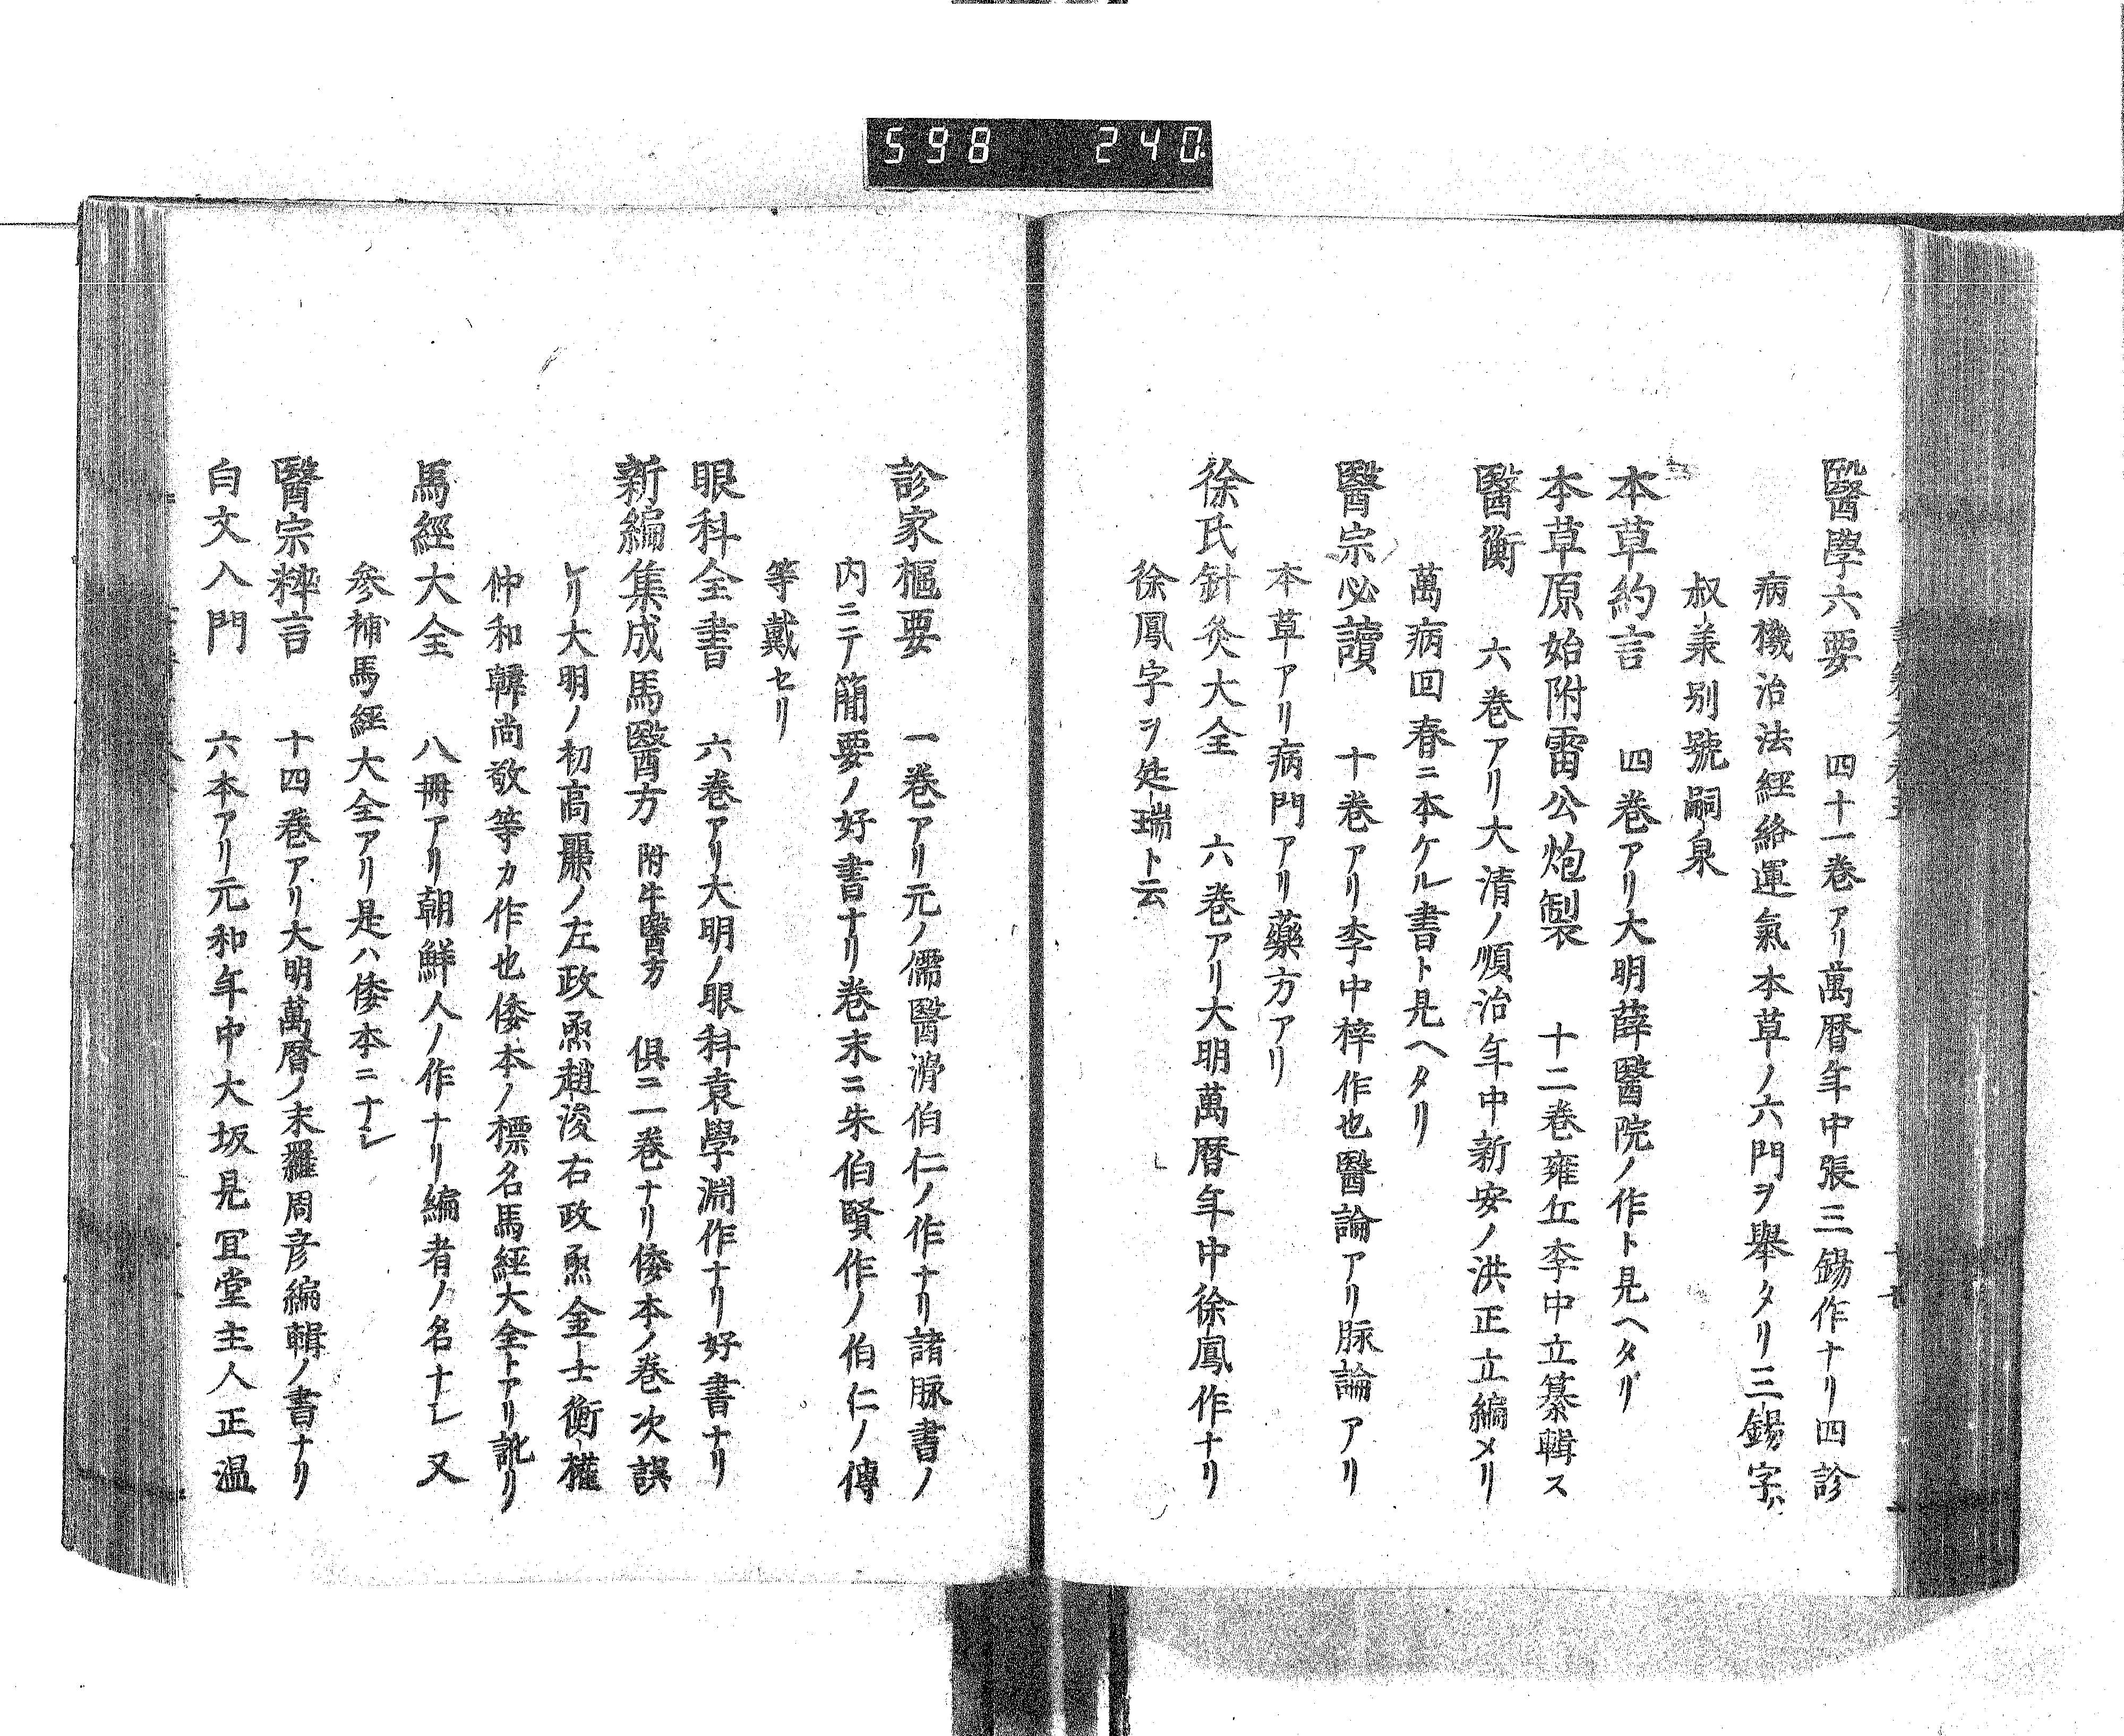 598 240
醫學六要 四十一巻アリ萬暦年中張三錫作ナリ四診
病機治法經絡運氣本草ノ六門ヲ舉タリ三錫字ハ
叔羕別號嗣泉
本草約言 四巻アリ大明薛醫院ノ作ト見ヘタリ
本草原始附雷公炮製 十二巻雍丘李中立纂輯ス
醫衡 六巻アリ大清ノ順治年中新安ノ洪正立編メリ
萬病回春ニ本ケル書ト見ヘタリ
醫宗必讀 十巻アリ李中梓作也醫論アリ脉論アリ
本草アリ病門アリ藥方アリ
徐氏針灸大全 六巻アリ大明萬暦年中徐鳳作ナリ
徐鳳字ヲ廷瑞ト云
診家樞要 一巻アリ元ノ儒醫滑伯仁ノ作ナリ諸脉書ノ
内ニテ簡要ノ好書ナリ巻末ニ朱伯賢作ノ伯仁ノ傳
等戴セリ
眼科全書 六巻アリ大明ノ眼科袁學淵作ナリ好書ナリ
新編集成馬醫方 附牛醫方 倶ニ一巻ナリ倭本ノ巻次誤
レリ大明ノ初高麗ノ左政烝趙浚右政烝金士衡權
仲和韓尚敬等カ作也倭本ノ標名馬經大全トアリ訛リ
馬經大全 八冊アリ朝鮮人ノ作ナリ編者ノ名ナシ又
参補馬經大全アリ是ハ倭本ニナシ
醫宗粹言 十四巻アリ大明萬暦ノ末羅周彦編輯ノ書ナリ
白文入門 六本アリ元和年中大坂見宜堂主人正温